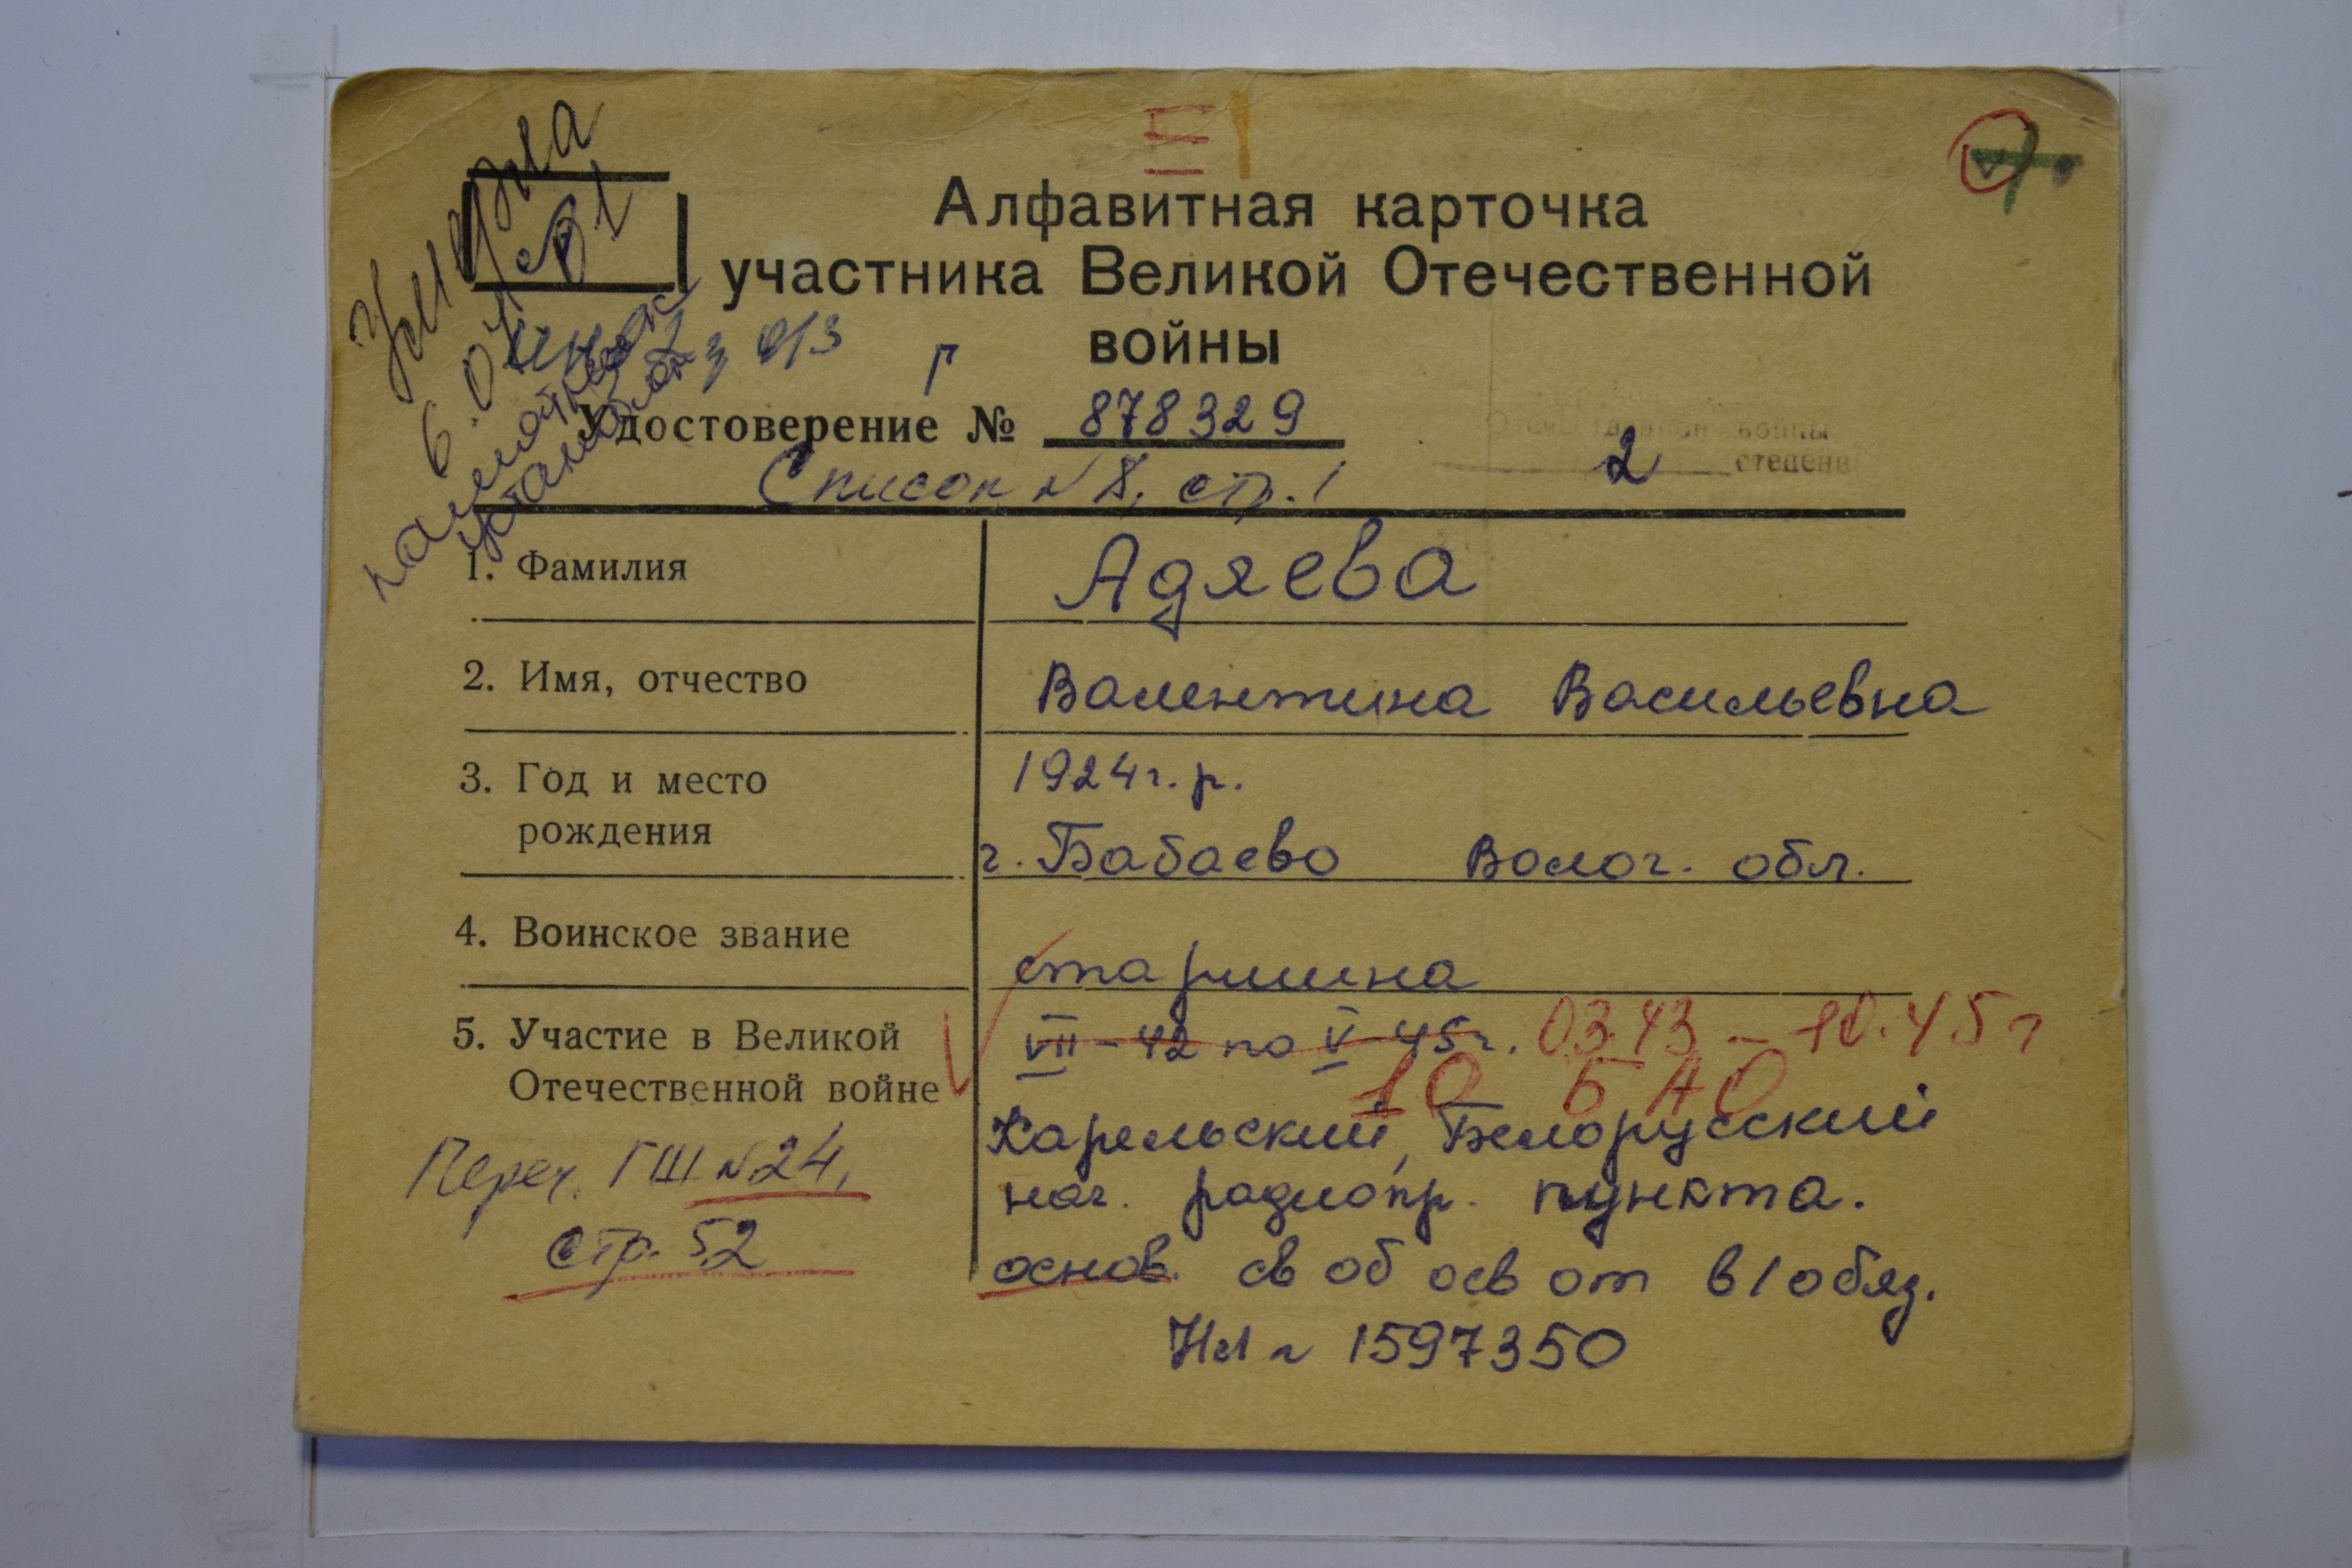 III
умерла
6.01.91
памятник
установлен
Алфавитная карточка
участника Великой Отечественной
войны
Удостоверение № 878329
Отечественной войны
2 степени
Список N 8, стр. 1
1. Фамилия Адяева
2. Имя, отчество Валентина Васильевна
3. Год и место 1924 г. р.
рождения г. Бабаево Волог. обл.
4. Воинское звание старшина
5. Участие в Великой VII - 42 по V 45 г. 03.43 - 10.45 г
Отечественной войне 10 БАО
Карельский, Белорусский
Переч. ГШ N 24, нач. радиопр. пункта.
стр. 52 основ. св об осв от в/обяз.
НЛ N 1597350